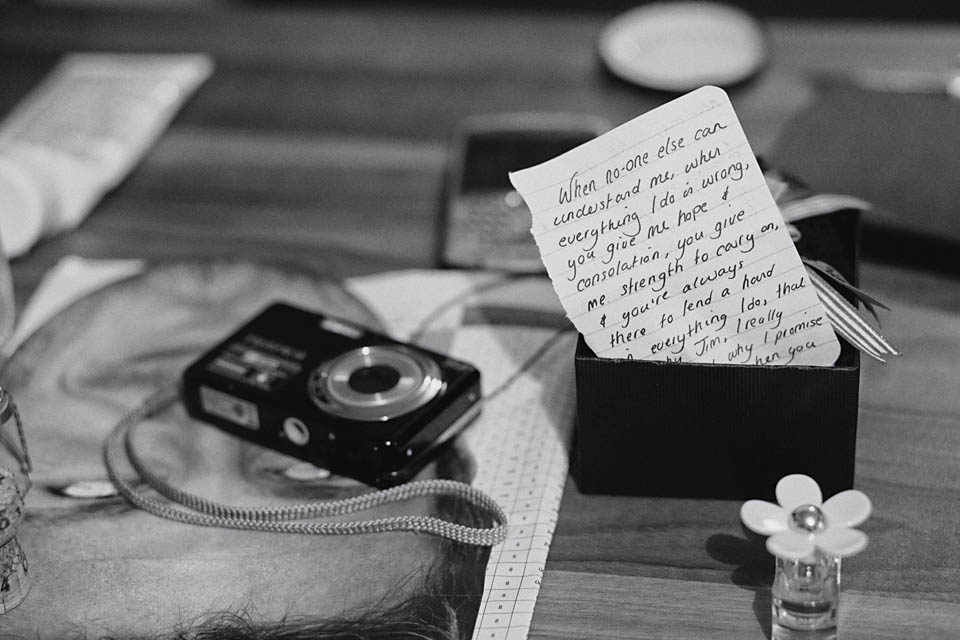 When no-one else can
understand me, when
everything I do is wrong,
you give me hope &
consolation, you give
me strength to carry on,
& you're always
there to lend a hand
everything I do, that
Jim, I really
why I promise
when you